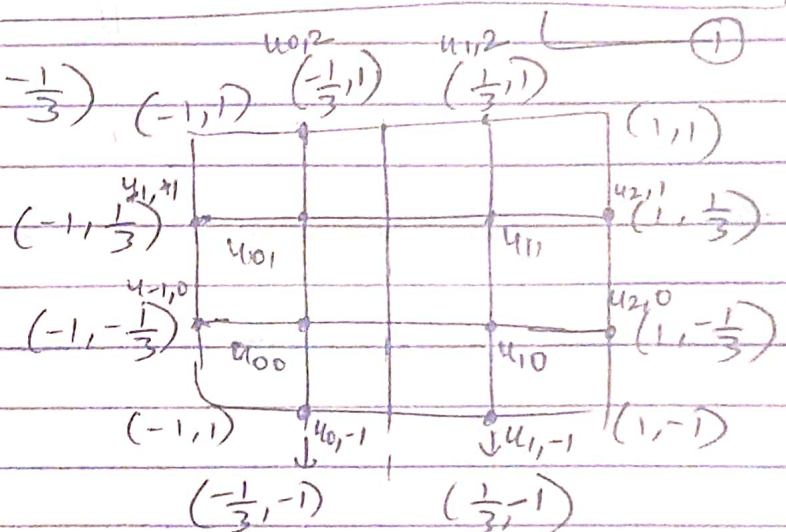 u0,2 u1,2 1
-1/3) (-1,1) (-1/3,1) (1/3,1) (1,1)
u2,1
(-1,1/3) (1,1/3)
u01 u11
u-1,0 u2,0
(-1,-1/3) (1,-1/3)
u00 u10
(-1,1) u0,-1 u1,-1 (1,-1)
(-1/3,-1) (1/3,-1)